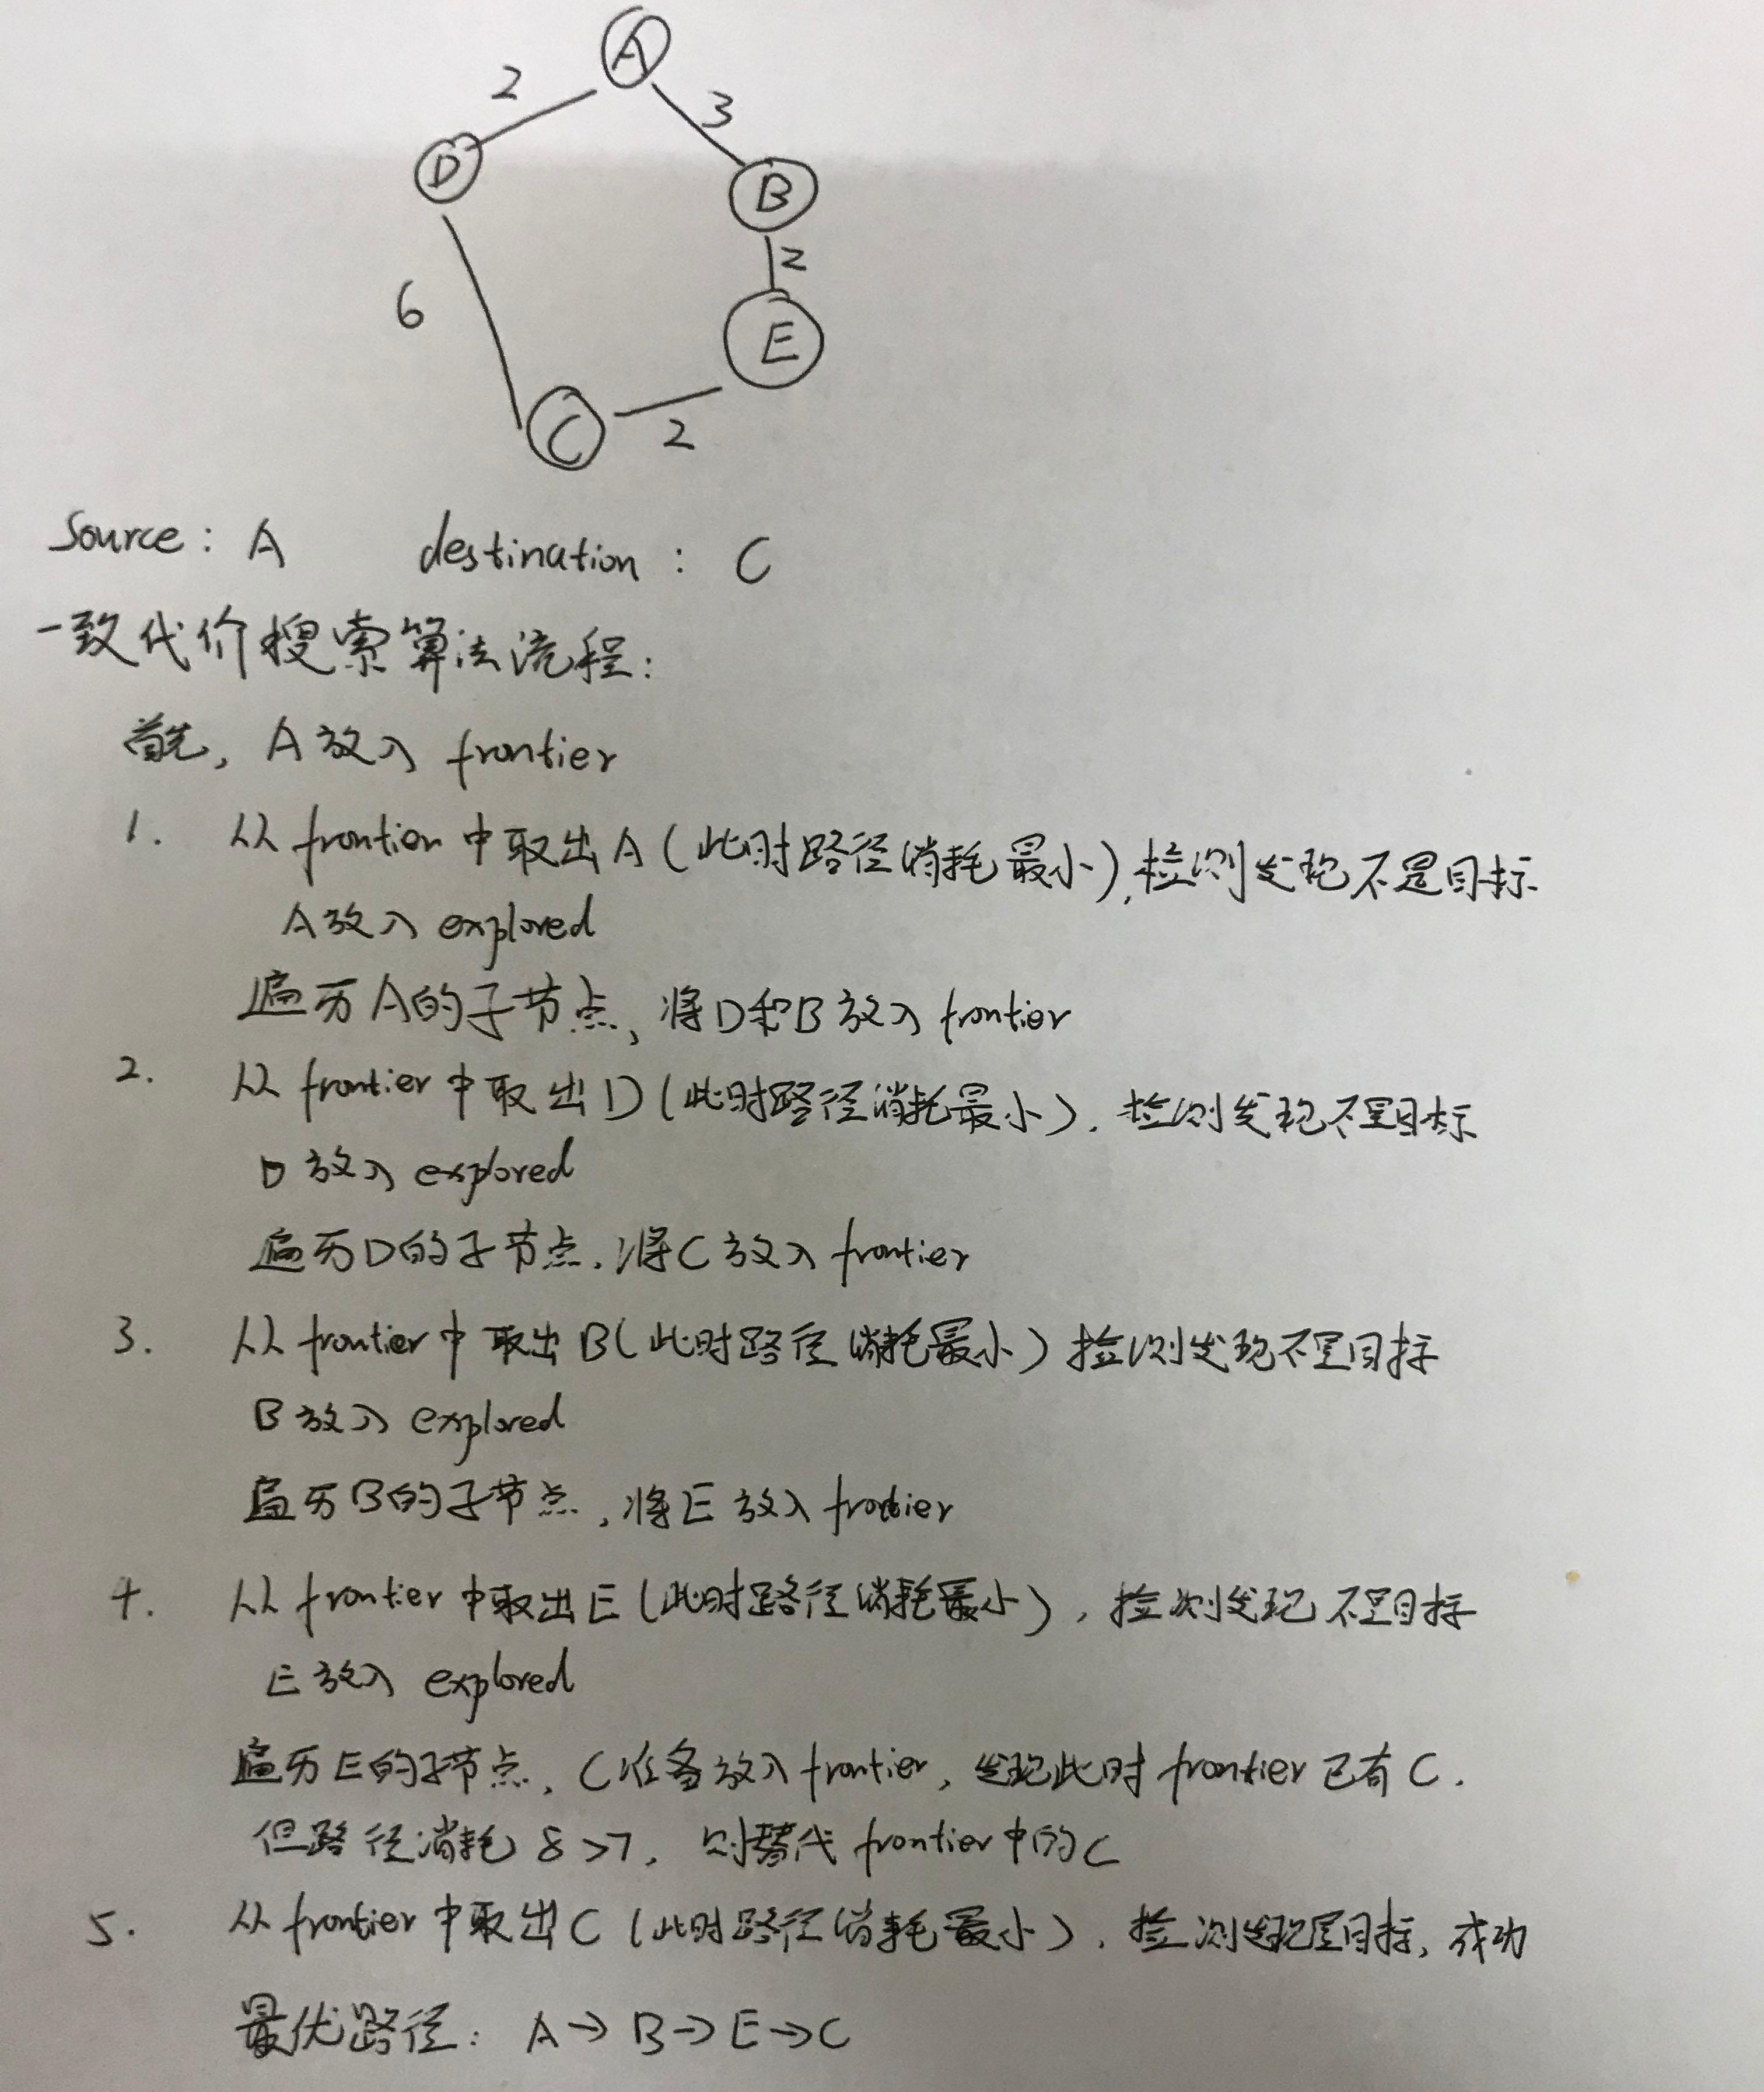 A
2
3
D
B
2
6
E
C
2
Source : A destination : C
一致代价搜索算法流程:
首先, A放入 frontier
1. 从 frontier 中取出A (此时路径消耗最小), 检测发现不是目标
A放入 explored
遍历A的子节点, 将D和B放入 frontier
2. 从 frontier 中取出D (此时路径消耗最小), 检测发现不是目标
D放入 explored
遍历D的子节点, 将C放入 frontier
3. 从 frontier 中取出B (此时路径消耗最小) 检测发现不是目标
B放入 explored
遍历B的子节点, 将E放入 frontier
4. 从 frontier 中取出E (此时路径消耗最小), 检测发现不是目标
E放入 explored
遍历E的子节点, C准备放入 frontier, 发现此时 frontier 已有C.
但路径消耗 8>7, 则替代 frontier 中的C
5. 从 frontier 中取出C (此时路径消耗最小), 检测发现是目标, 成功
最优路径: A→B→E→C